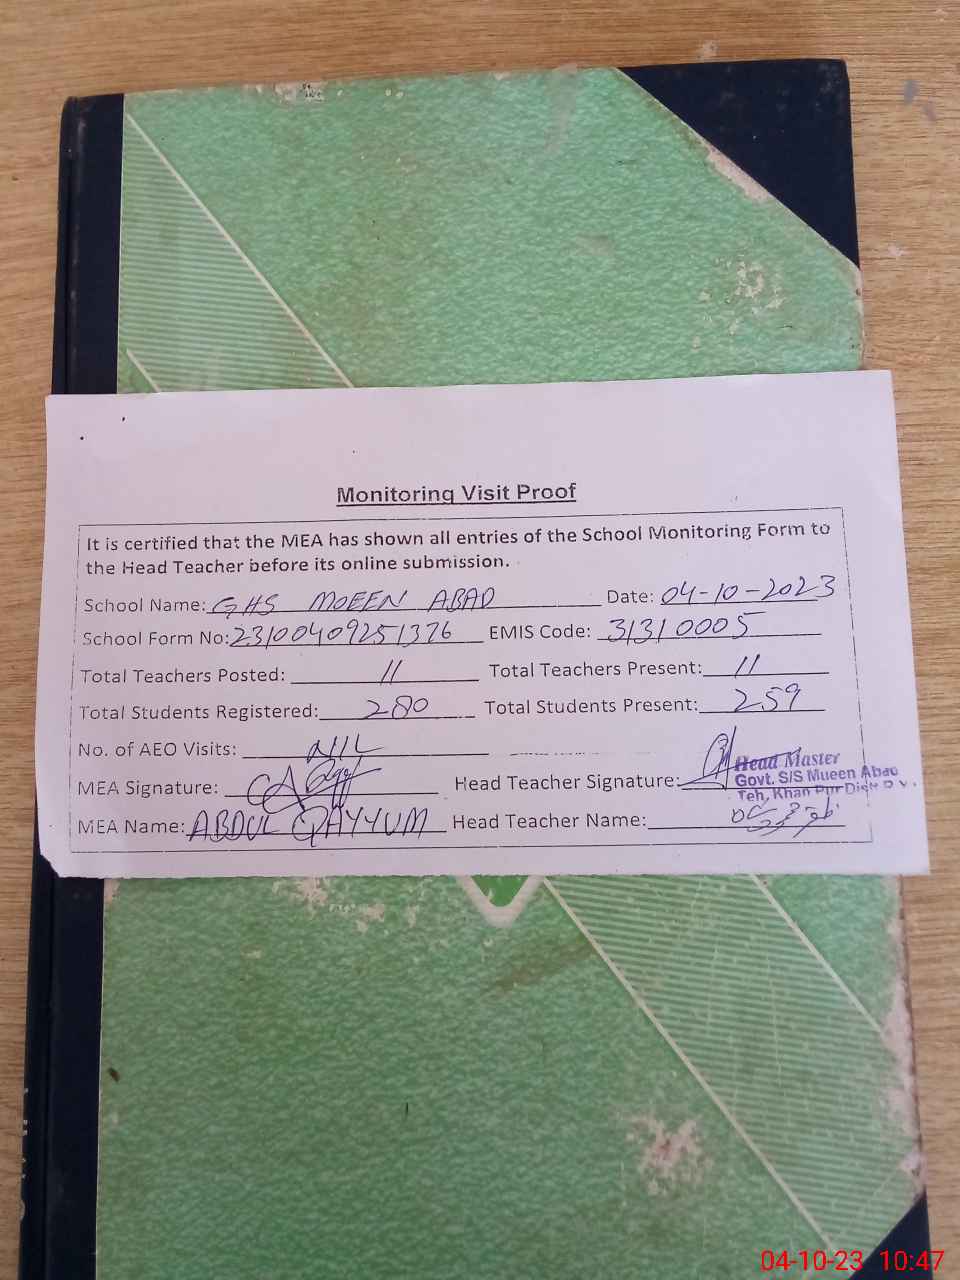 Monitoring Visit Proof
It is certified that the MEA has shown all entries of the School Monitoring Form to
the Head Teacher before its online submission.
School Name: GHS MOEEN ABAD Date: 04-10-2023
School Form No: 23100409251376 EMIS Code: 31310005
Total Teachers Posted: 11 Total Teachers Present: 11
Total Students Registered: 280 Total Students Present: 259
No. of AEO Visits: NIL
MEA Signature: Head Teacher Signature:
Head Master
Govt. S/S Mueen Abad
Teh, Khan Pur Distt
MEA Name: ABDUL QAYYUM Head Teacher Name:
04-10-23 10:47